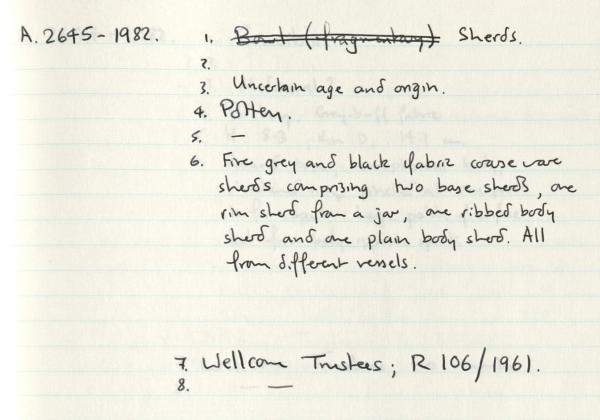 A.2645-1982. 1. Bowl (fragmentary) Sherds.
2.
3. Uncertain age and origin.
4. Pottery.
5. —
6. Fine grey and black fabric coarse ware
sherds comprising two base sherds, one
rim sherd from a jar, one ribbed body
sherd and one plain body sherd. All
from different vessels.
7. Wellcome Trustees; R 106/1961.
8. —